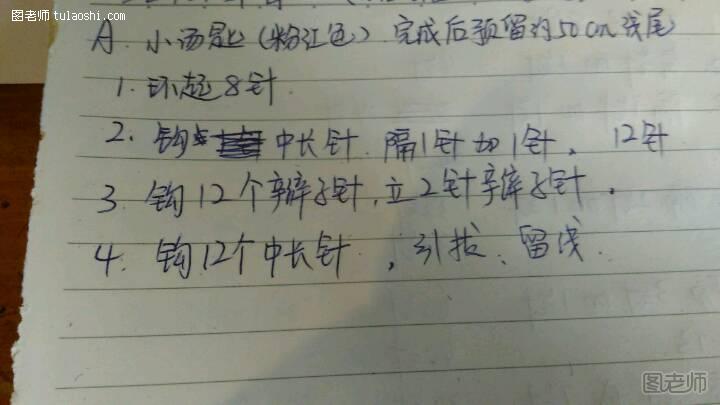 图老师 tulaoshi.com
A. 小汤匙(粉红色) 完成后预留约50cm线尾
1. 环起8针
2. 钩 中长针 隔1针加1针, 12针
3. 钩12个辫子针,立2针辫子针,
4. 钩12个中长针 ,引拔、留线.
图老师